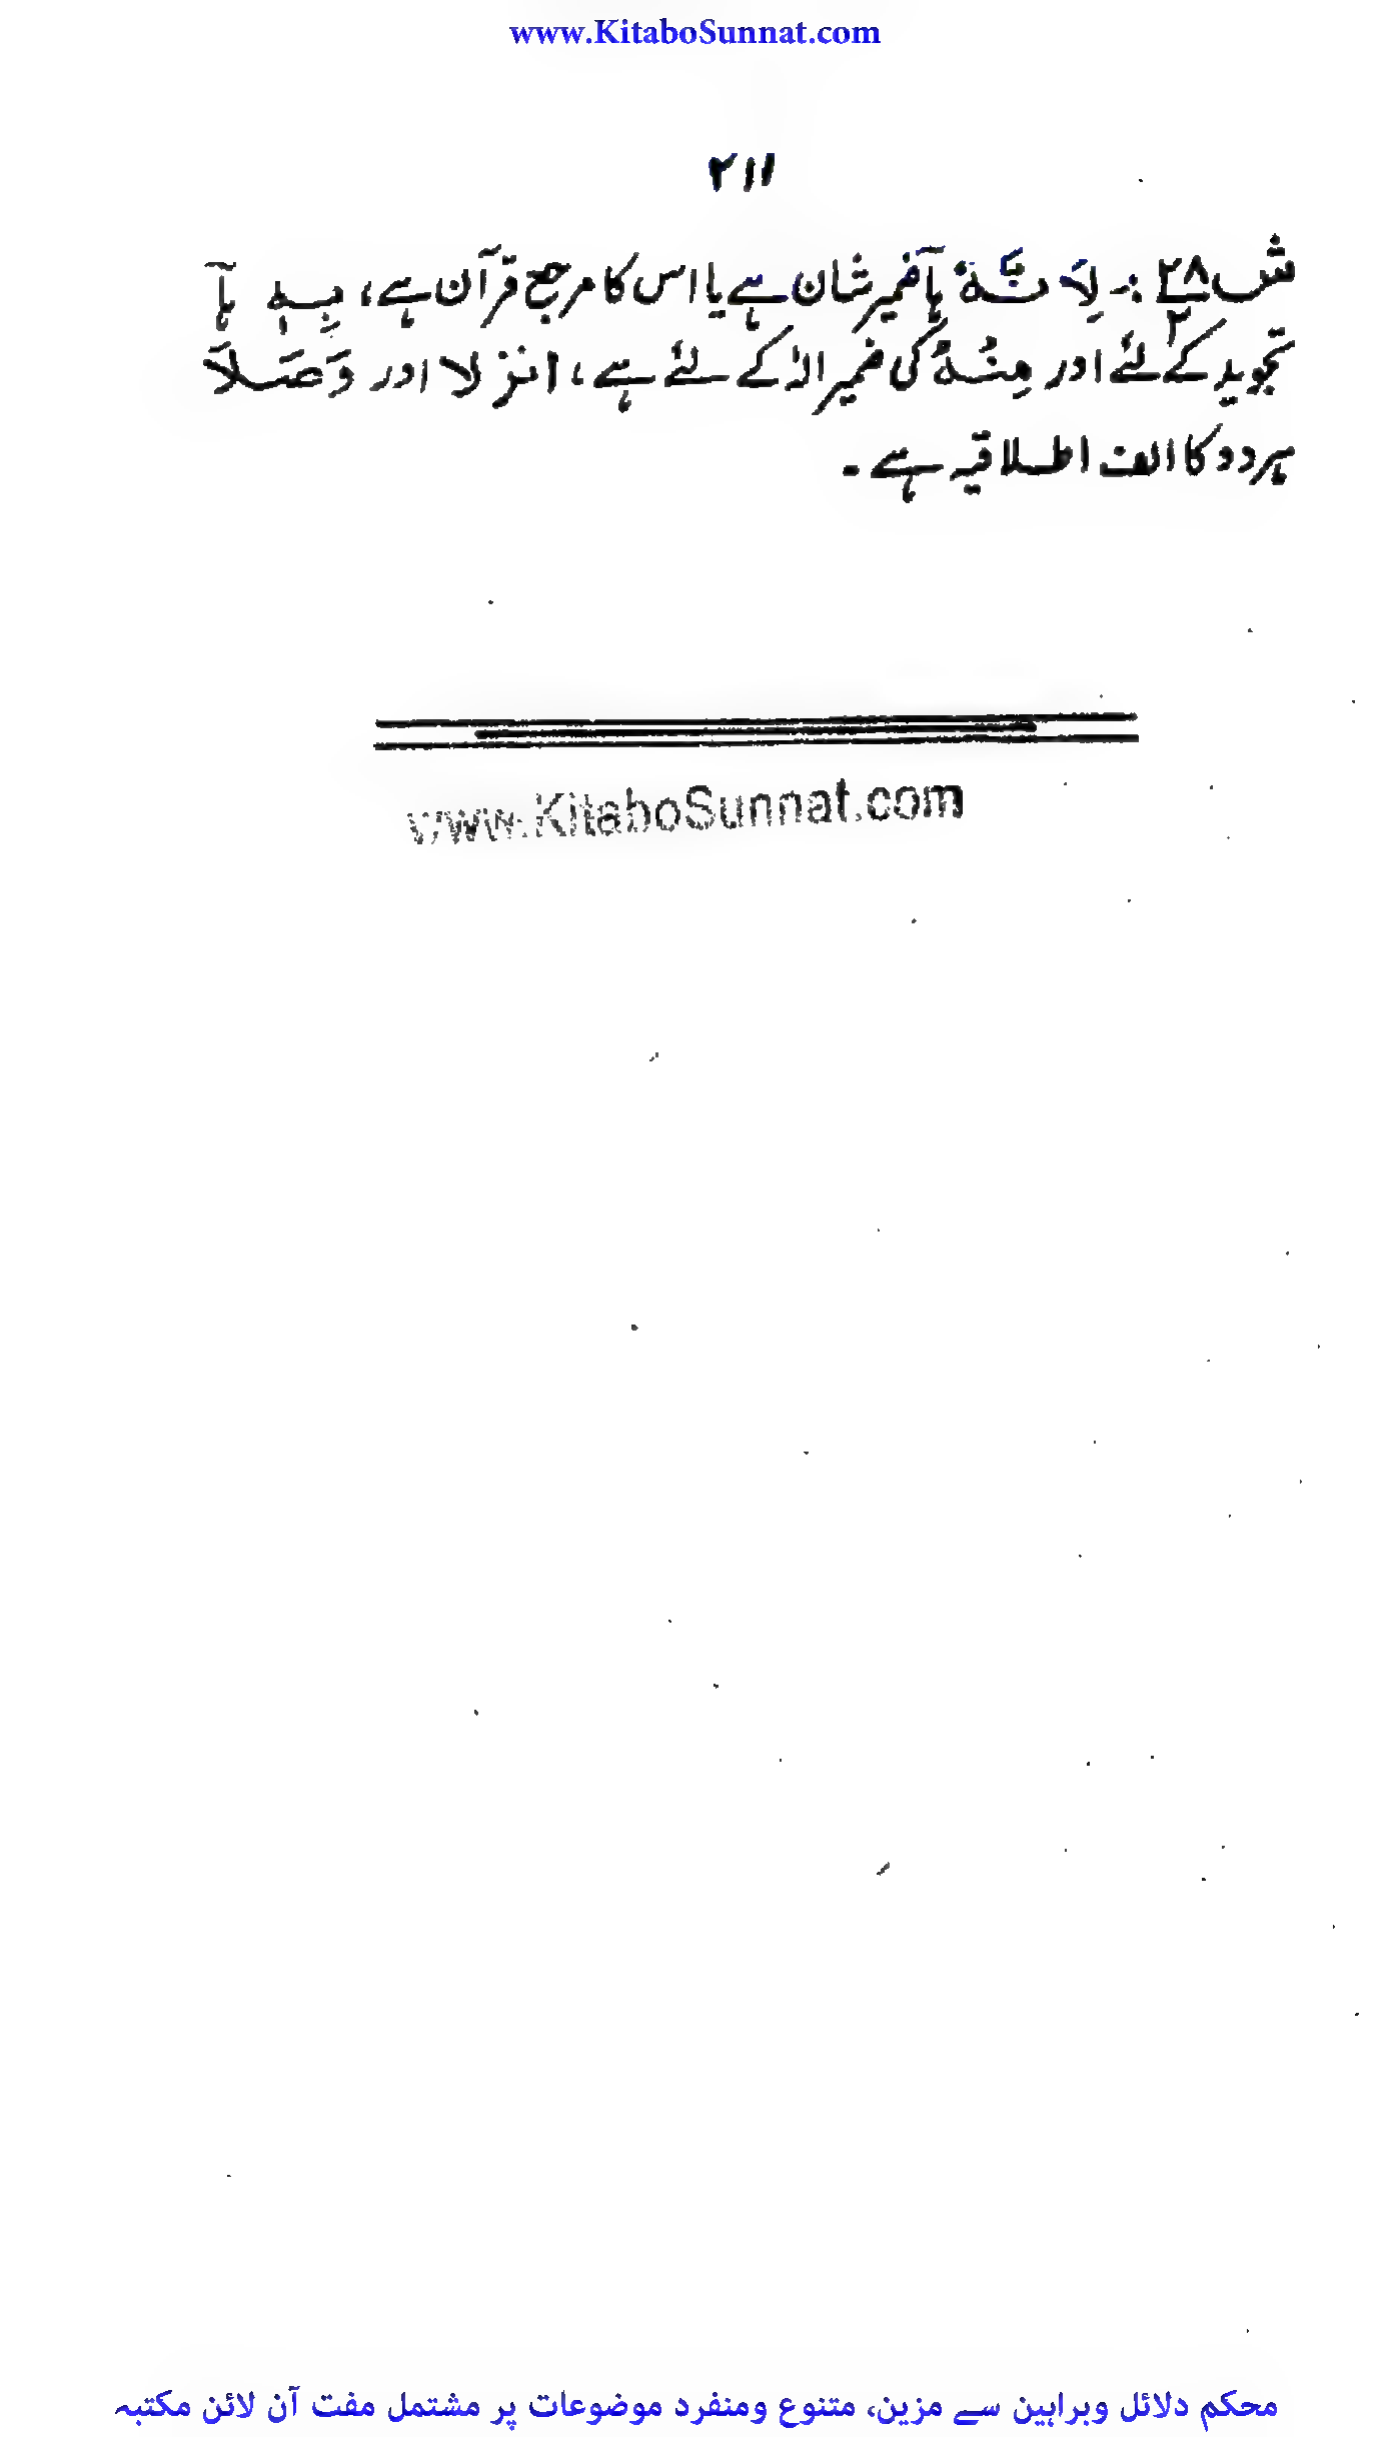 www.KitaboSunnat.com
۲۱۱
ش ۲۸ :۔ لِاَنَّهٗ ہآ ضمیر شان ہے یا اس کا مرجع قرآن ہے، بِهٖ ہآ
تجوید کے لئے اور مِنْهُ کی ضمیر الٰہ کے لئے ہے، انزلا اور وَصَلَا
ہر دو کا الف اطلاقیہ ہے ۔
www.KitaboSunnat.com
محکم دلائل وبراہین سے مزین، متنوع ومنفرد موضوعات پر مشتمل مفت آن لائن مکتبہ